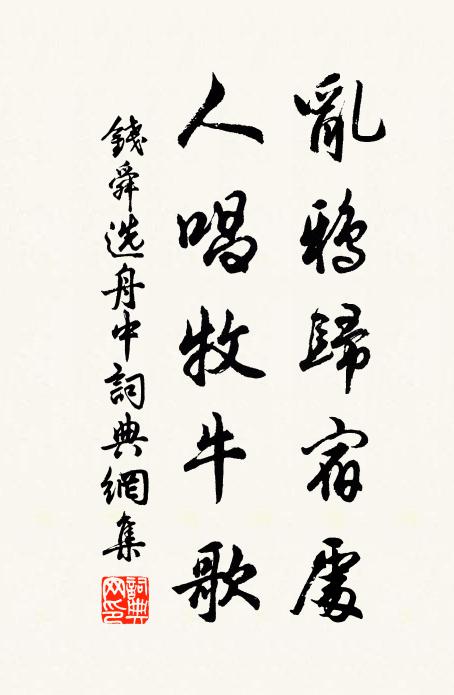 亂鴉歸宿處
人唱牧牛歌
錢舜选舟中詞典網集
詞典网印